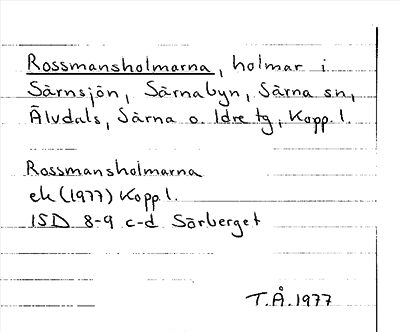 Rossmansholmarna, holmar i
Särnsjön, Särnabyn, Särna sn,
Älvdals, Särna o. Idre tg, Kopp. l.
Rossmansholmarna
ek (1977) Kopp. l.
15D 8-9 c-d Sörberget
T.Å. 1977